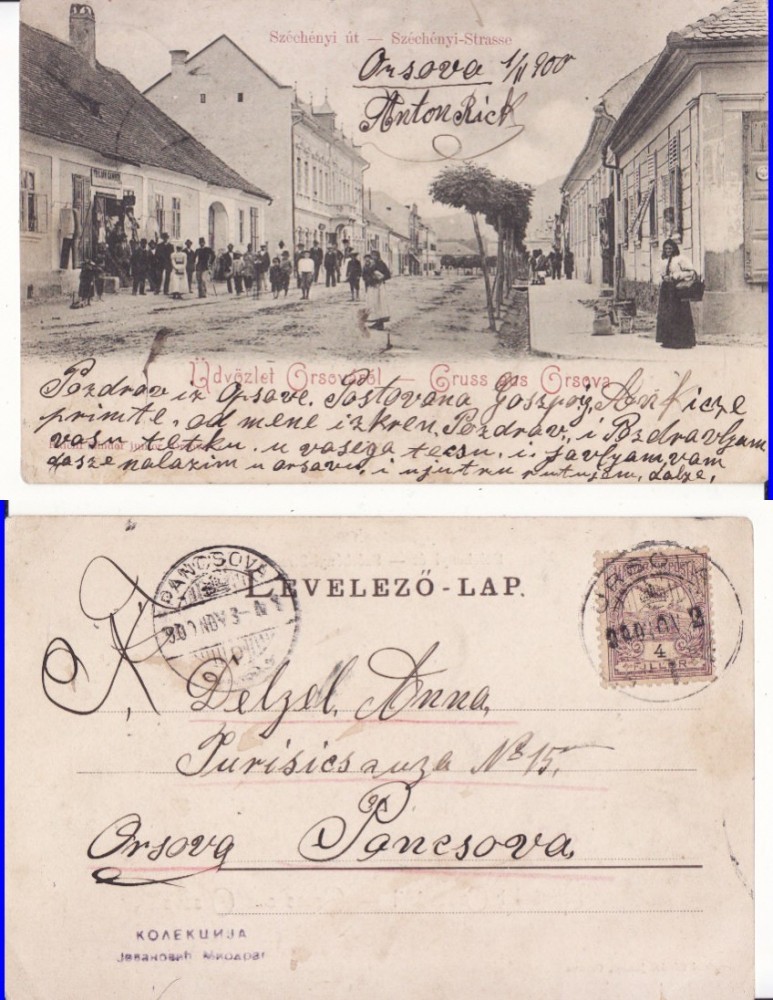 Széchényi út — Széchényi-Strasse
Orsova 1/11 900
Anton Rick
Üdvözlet Orsováról — Gruss aus Orsova
Pozdrav iz Orsave. Postovana Gospog, Ankicze
primte, od mene izkren, Pozdrav, i Pozdravljam
vasu tetku. u vasega tecsu, i. javljam vam
dasze nalazim u orsavu, i ujutru putujem, dalje,
PANCSOVA
900 NOV 3
LEVELEZŐ-LAP.
ORSOVA
900 NOV 2
4
FILLÉR
Delzel, Anna,
Purisicsauza No 15,
Orsova Páncsova,
КОЛЕКЦИЈА
Јовановић Миодраг